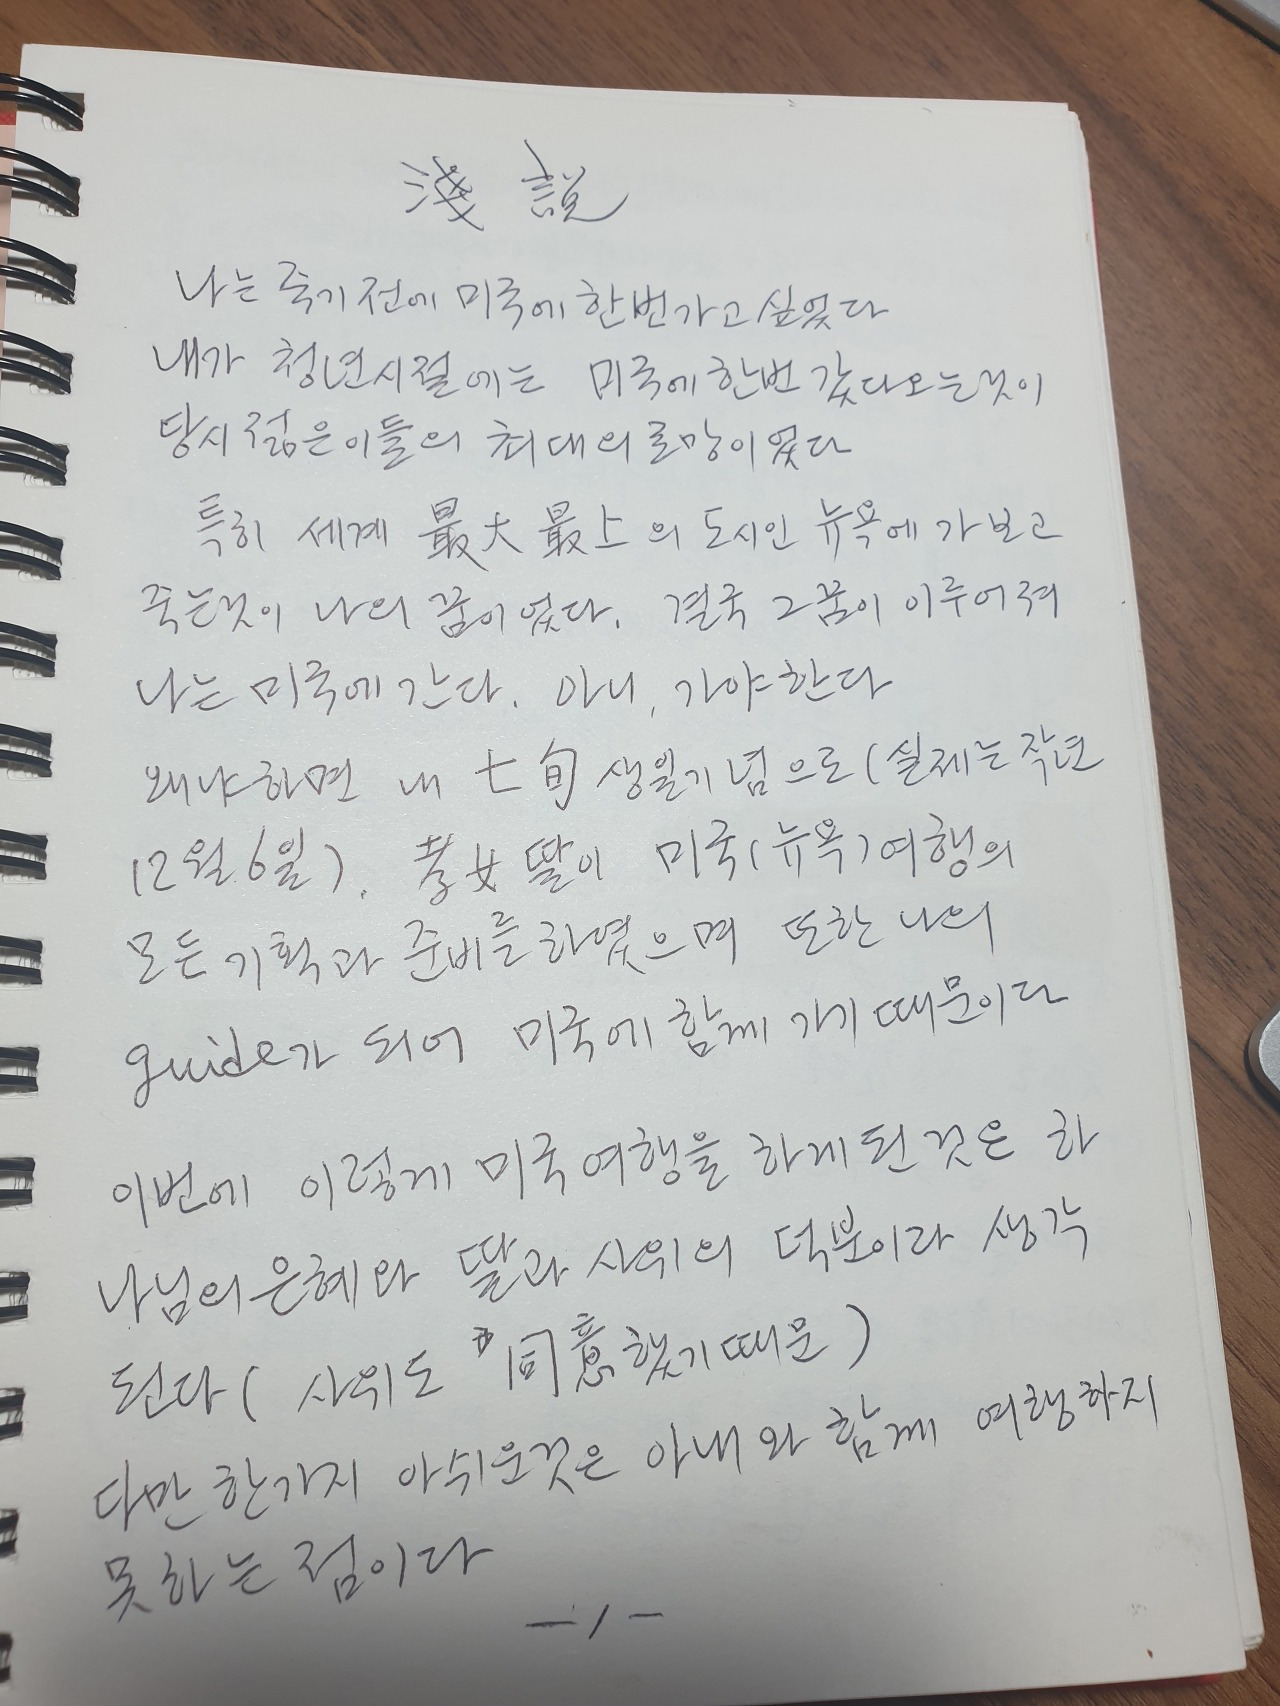 淺 說
나는 죽기전에 미국에 한번가고싶었다
내가 청년시절에는 미국에한번 갔다오는것이
당시 젊은이들의 최대의 로망이었다
특히 세계 最大 最上의 도시인 뉴욕에 가보고
죽는것이 나의 꿈이었다. 결국 그꿈이 이루어져
나는 미국에 간다. 아니, 가야한다
왜냐하면 내 七旬 생일기념으로(실제는 작년
12월6일). 孝女딸이 미국(뉴욕)여행의
모든 기획과 준비를 하였으며 또한 나의
guide가 되어 미국에 함께 가기 때문이다
이번에 이렇게 미국여행을 하게된것은 하
나님의 은혜와 딸과 사위의 덕분이라 생각
된다( 사위도 同意했기때문)
다만 한가지 아쉬운것은 아내와 함께 여행하지
못하는 점이다
- 1 -